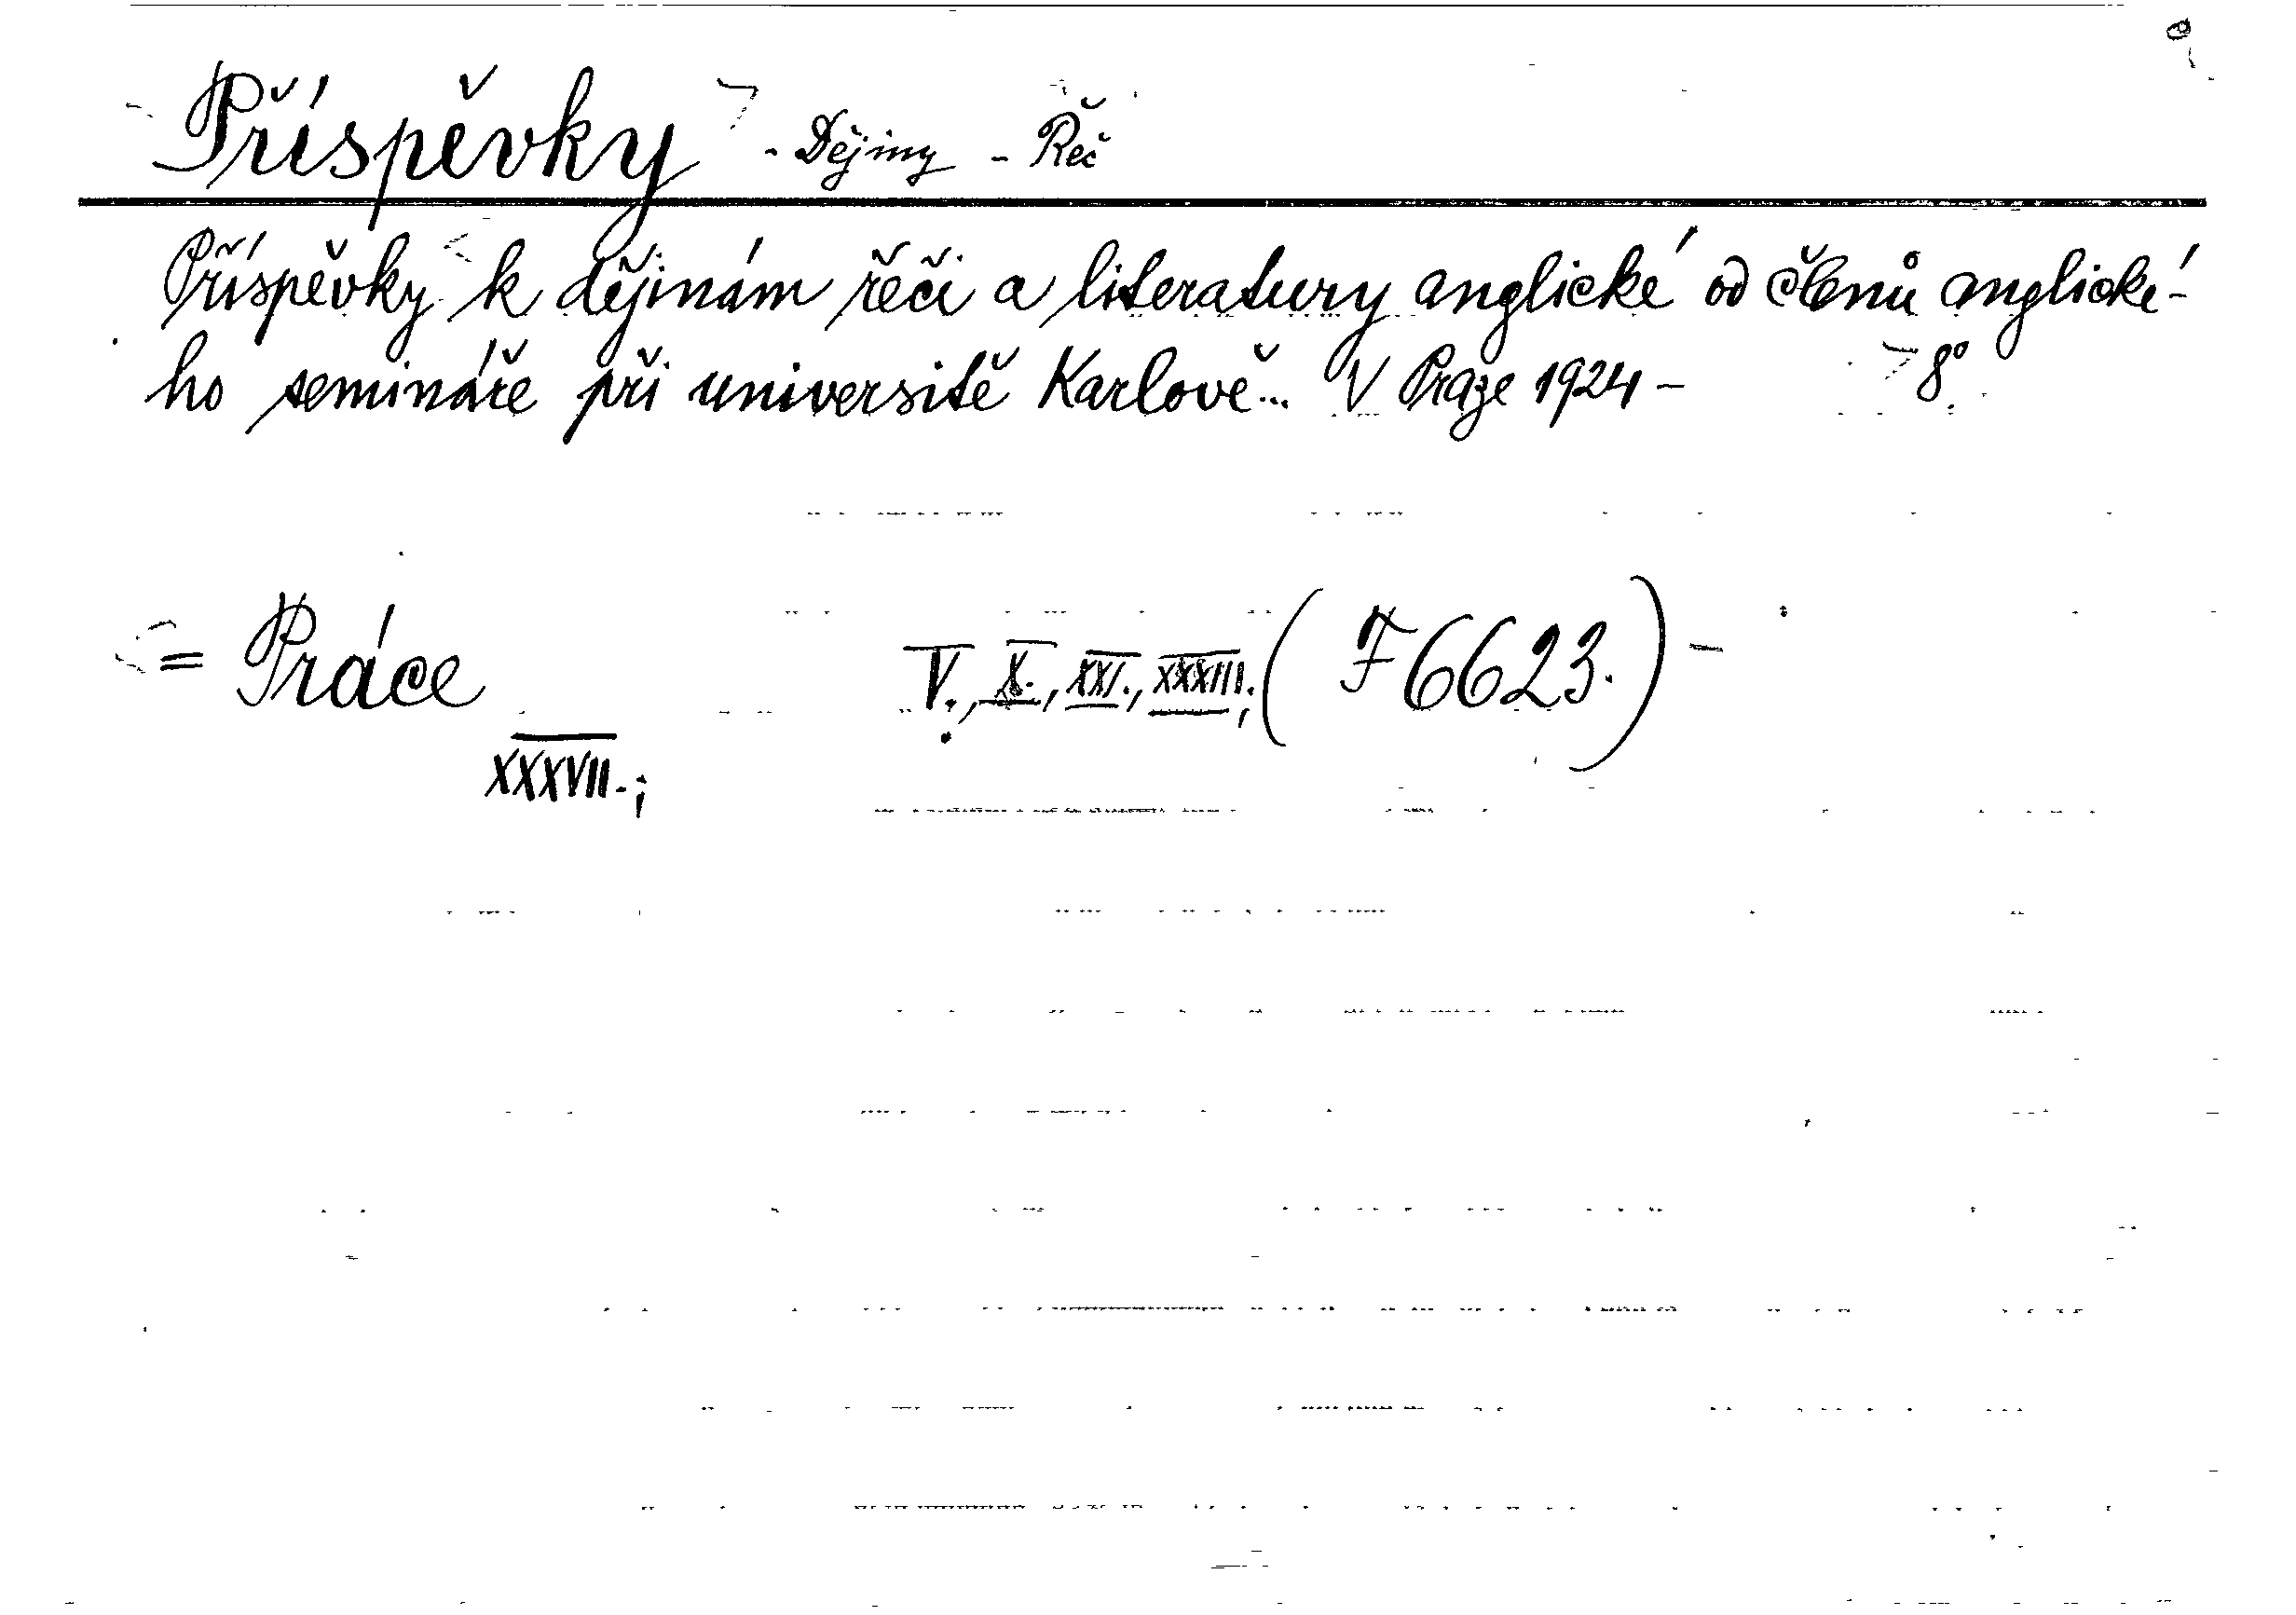 Příspěvky - Dějiny - Řeč
Příspěvky k dějinám řeči a literatury anglické od členů anglické-
ho semináře při universitě Karlově... V Praze 1924 - 8°
= Práce V., X., XXI., XXXIII.; (F 6623.) -
XXXVII.;